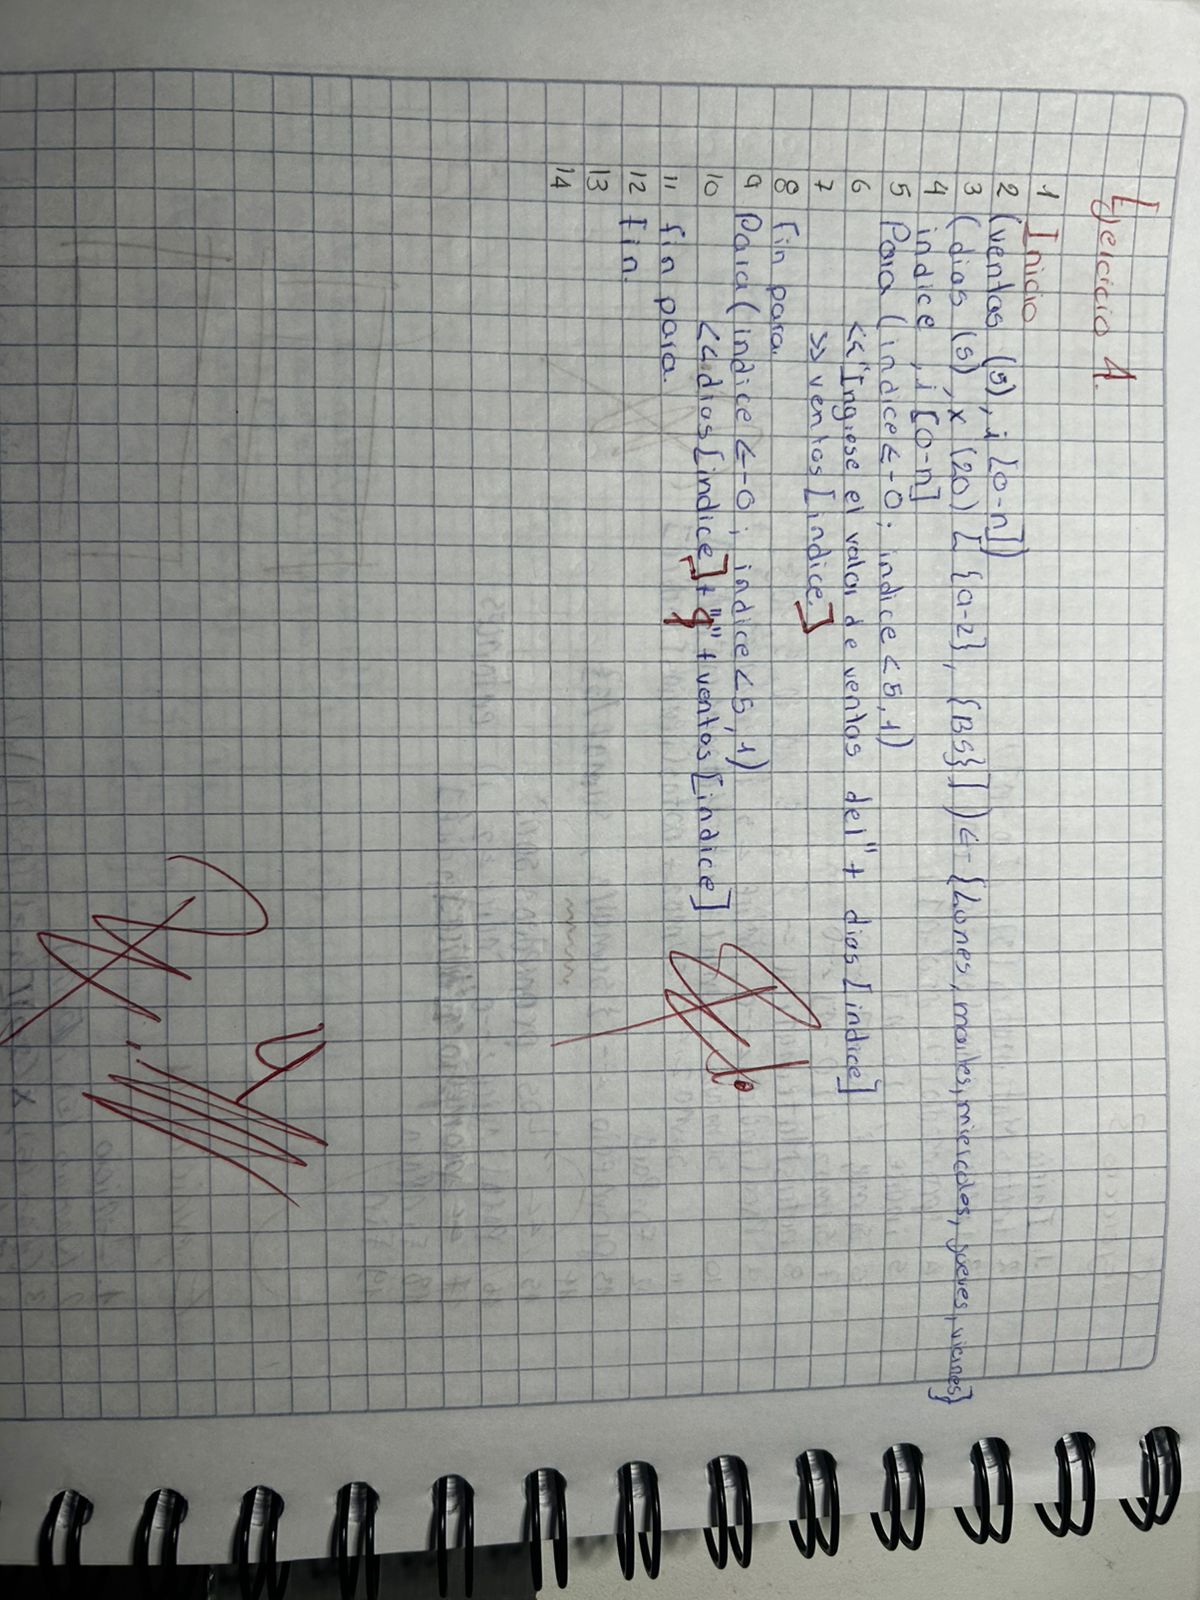 Ejercicio 1.
1 Inicio
2 (ventas (5), i [0-n])
3 (dias (5), x (20) [{a-z}, {BS}]) <- {Lunes, martes, miercoles, jueves, viernes}
4 indice, i [0-n]
5 Para (indice <- 0; indice < 5, 1)
6 << "Ingrese el valor de ventas del" + dias [indice]
7 >> ventas [indice]
8 fin para
9 Para (indice <- 0; indice < 5, 1)
10 << dias [indice] + " " + ventas [indice]
11 fin para.
12 fin.
13
14